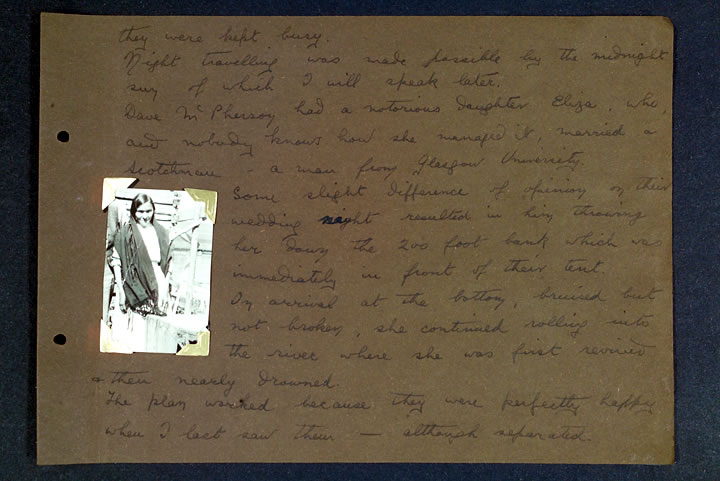 they were kept busy.
Night travelling was made possible by the midnight
sun of which I will speak later.
Dave McPherson had a notorious daughter Eliza, who,
and nobody knows how she managed it, married a
Scotchman - a man from Glasgow University.
Some slight difference of opinion on their
wedding night resulted in him throwing
her down the 200 foot bank which was
immediately in front of their tent.
On arrival at the bottom, bruised but
not broken, she continued rolling into
the river where she was first revived
& then nearly drowned.
The plan worked because they were perfectly happy
when I last saw them — although separated.